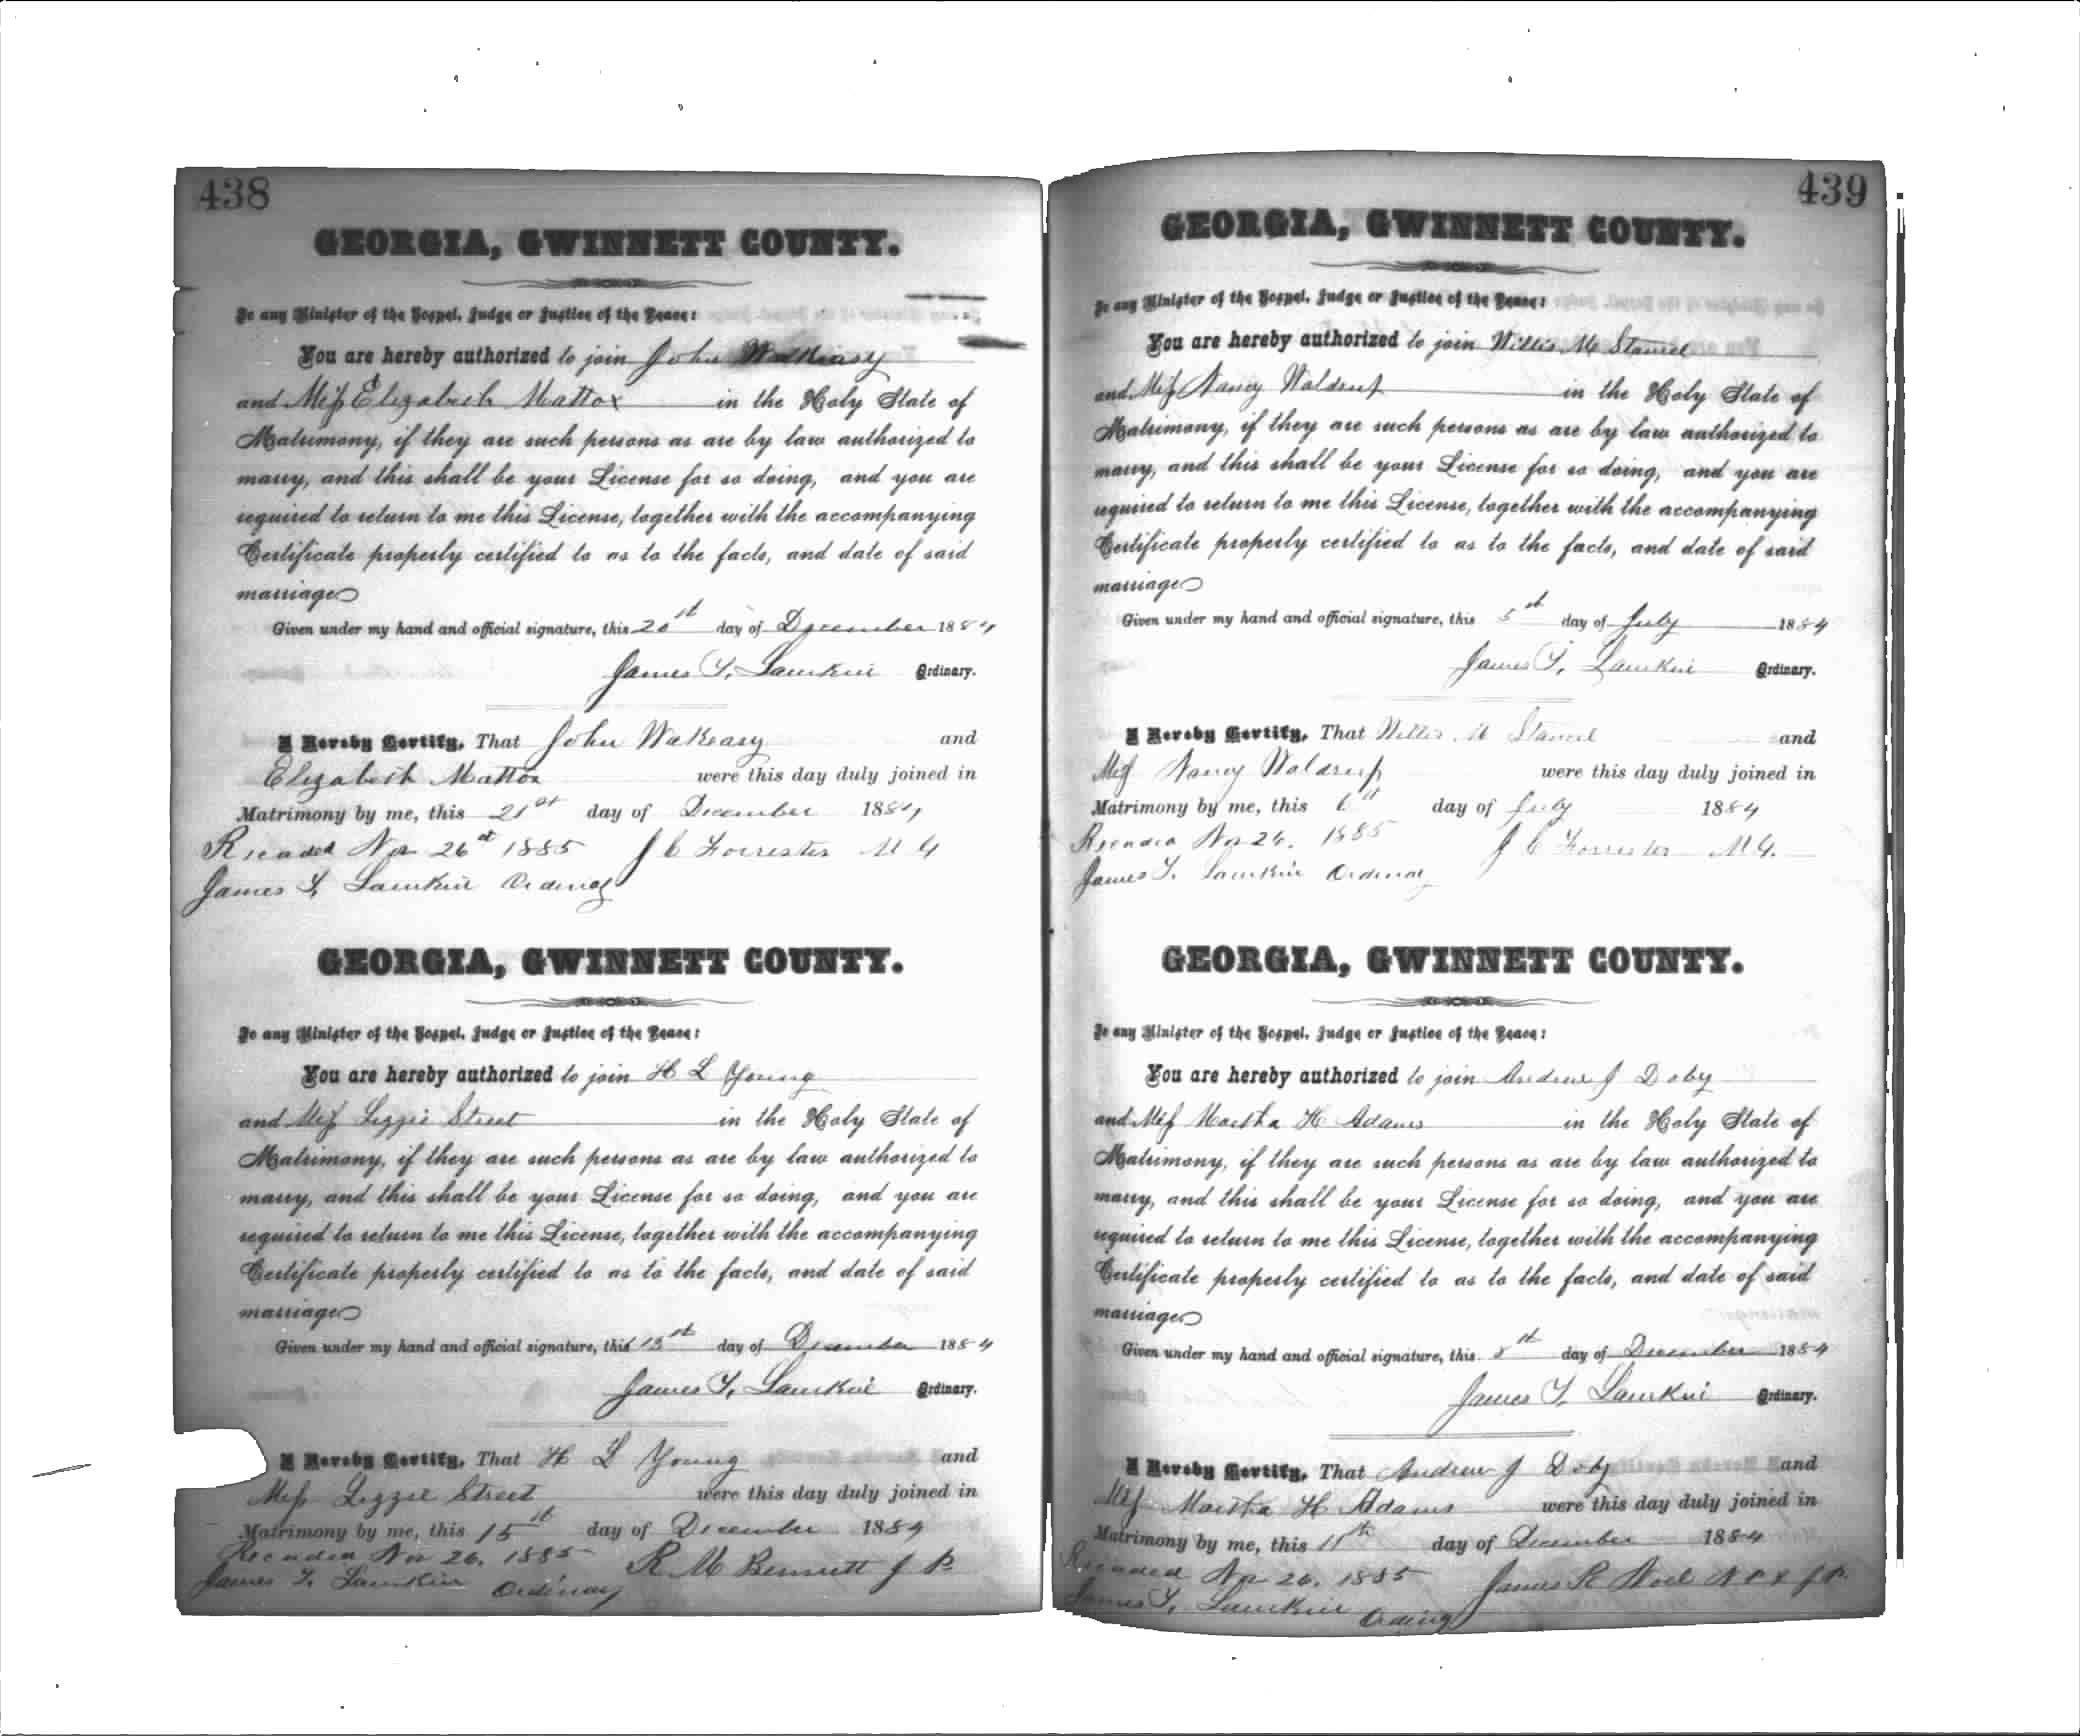 438
GEORGIA, GWINNETT COUNTY.
To any Minister of the Gospel, Judge or Justice of the Peace:
You are hereby authorized to join John Wakeasy
and Miss Elizabeth Mattox in the Holy State of
Matrimony, if they are such persons as are by law authorized to
marry, and this shall be your License for so doing, and you are
required to return to me this License, together with the accompanying
Certificate properly certified to as to the facts, and date of said
marriage
Given under my hand and official signature, this 20st day of December 1884
James T. Lamkin Ordinary.
I Hereby Certify, That John Wakeasy and
Elizabeth Mattox were this day duly joined in
Matrimony by me, this 21st day of December 1884
Recorded Nov 26st 1885 J C Forrester M G
James T. Lamkin Ordinary
GEORGIA, GWINNETT COUNTY.
To any Minister of the Gospel, Judge or Justice of the Peace:
You are hereby authorized to join H L Young
and Miss Lizzie Street in the Holy State of
Matrimony, if they are such persons as are by law authorized to
marry, and this shall be your License for so doing, and you are
required to return to me this License, together with the accompanying
Certificate properly certified to as to the facts, and date of said
marriage
Given under my hand and official signature, this 15st day of December 1884
James T. Lamkin Ordinary.
I Hereby Certify, That H L Young and
Miss Lizzie Street were this day duly joined in
Matrimony by me, this 15st day of December 1884
Recorded Nov 26. 1885 R M Bennett J P.
James T. Lamkin Ordinary
439
GEORGIA, GWINNETT COUNTY.
To any Minister of the Gospel, Judge or Justice of the Peace:
You are hereby authorized to join Willis M Stancel
and Miss Nancy Waldrup in the Holy State of
Matrimony, if they are such persons as are by law authorized to
marry, and this shall be your License for so doing, and you are
required to return to me this License, together with the accompanying
Certificate properly certified to as to the facts, and date of said
marriage
Given under my hand and official signature, this 5st day of July 1884
James T. Lamkin Ordinary.
I Hereby Certify, That Willis M Stancel and
Miss Nancy Waldrup were this day duly joined in
Matrimony by me, this 6st day of July 1884
Recorded Nov 26. 1885 J C Forrester M G.
James T. Lamkin Ordinary
GEORGIA, GWINNETT COUNTY.
To any Minister of the Gospel, Judge or Justice of the Peace:
You are hereby authorized to join Andrew J Doby
and Miss Martha H Adams in the Holy State of
Matrimony, if they are such persons as are by law authorized to
marry, and this shall be your License for so doing, and you are
required to return to me this License, together with the accompanying
Certificate properly certified to as to the facts, and date of said
marriage
Given under my hand and official signature, this st day of December 1884
James T. Lamkin Ordinary.
I Hereby Certify, That Andrew J Doby and
Miss Martha H Adams were this day duly joined in
Matrimony by me, this 11th day of December 1884
Recorded Nov 26. 1885 James R Noel N P & J P.
James T. Lamkin Ordinary